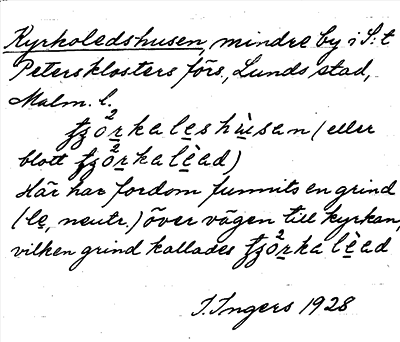 Kyrkoledshusen, mindre by i S:t
Petersklosters förs., Lunds stad,
Malm. l.
ꞙȥo²rkaleshùsan (eller
blott ꞙȥo²rkalèad)
Här har fordom funnits en grind
(-le, neutr.) över vägen till kyrkan,
vilken grind kallades ꞙȥo²rkalèad
I. Ingers 1928